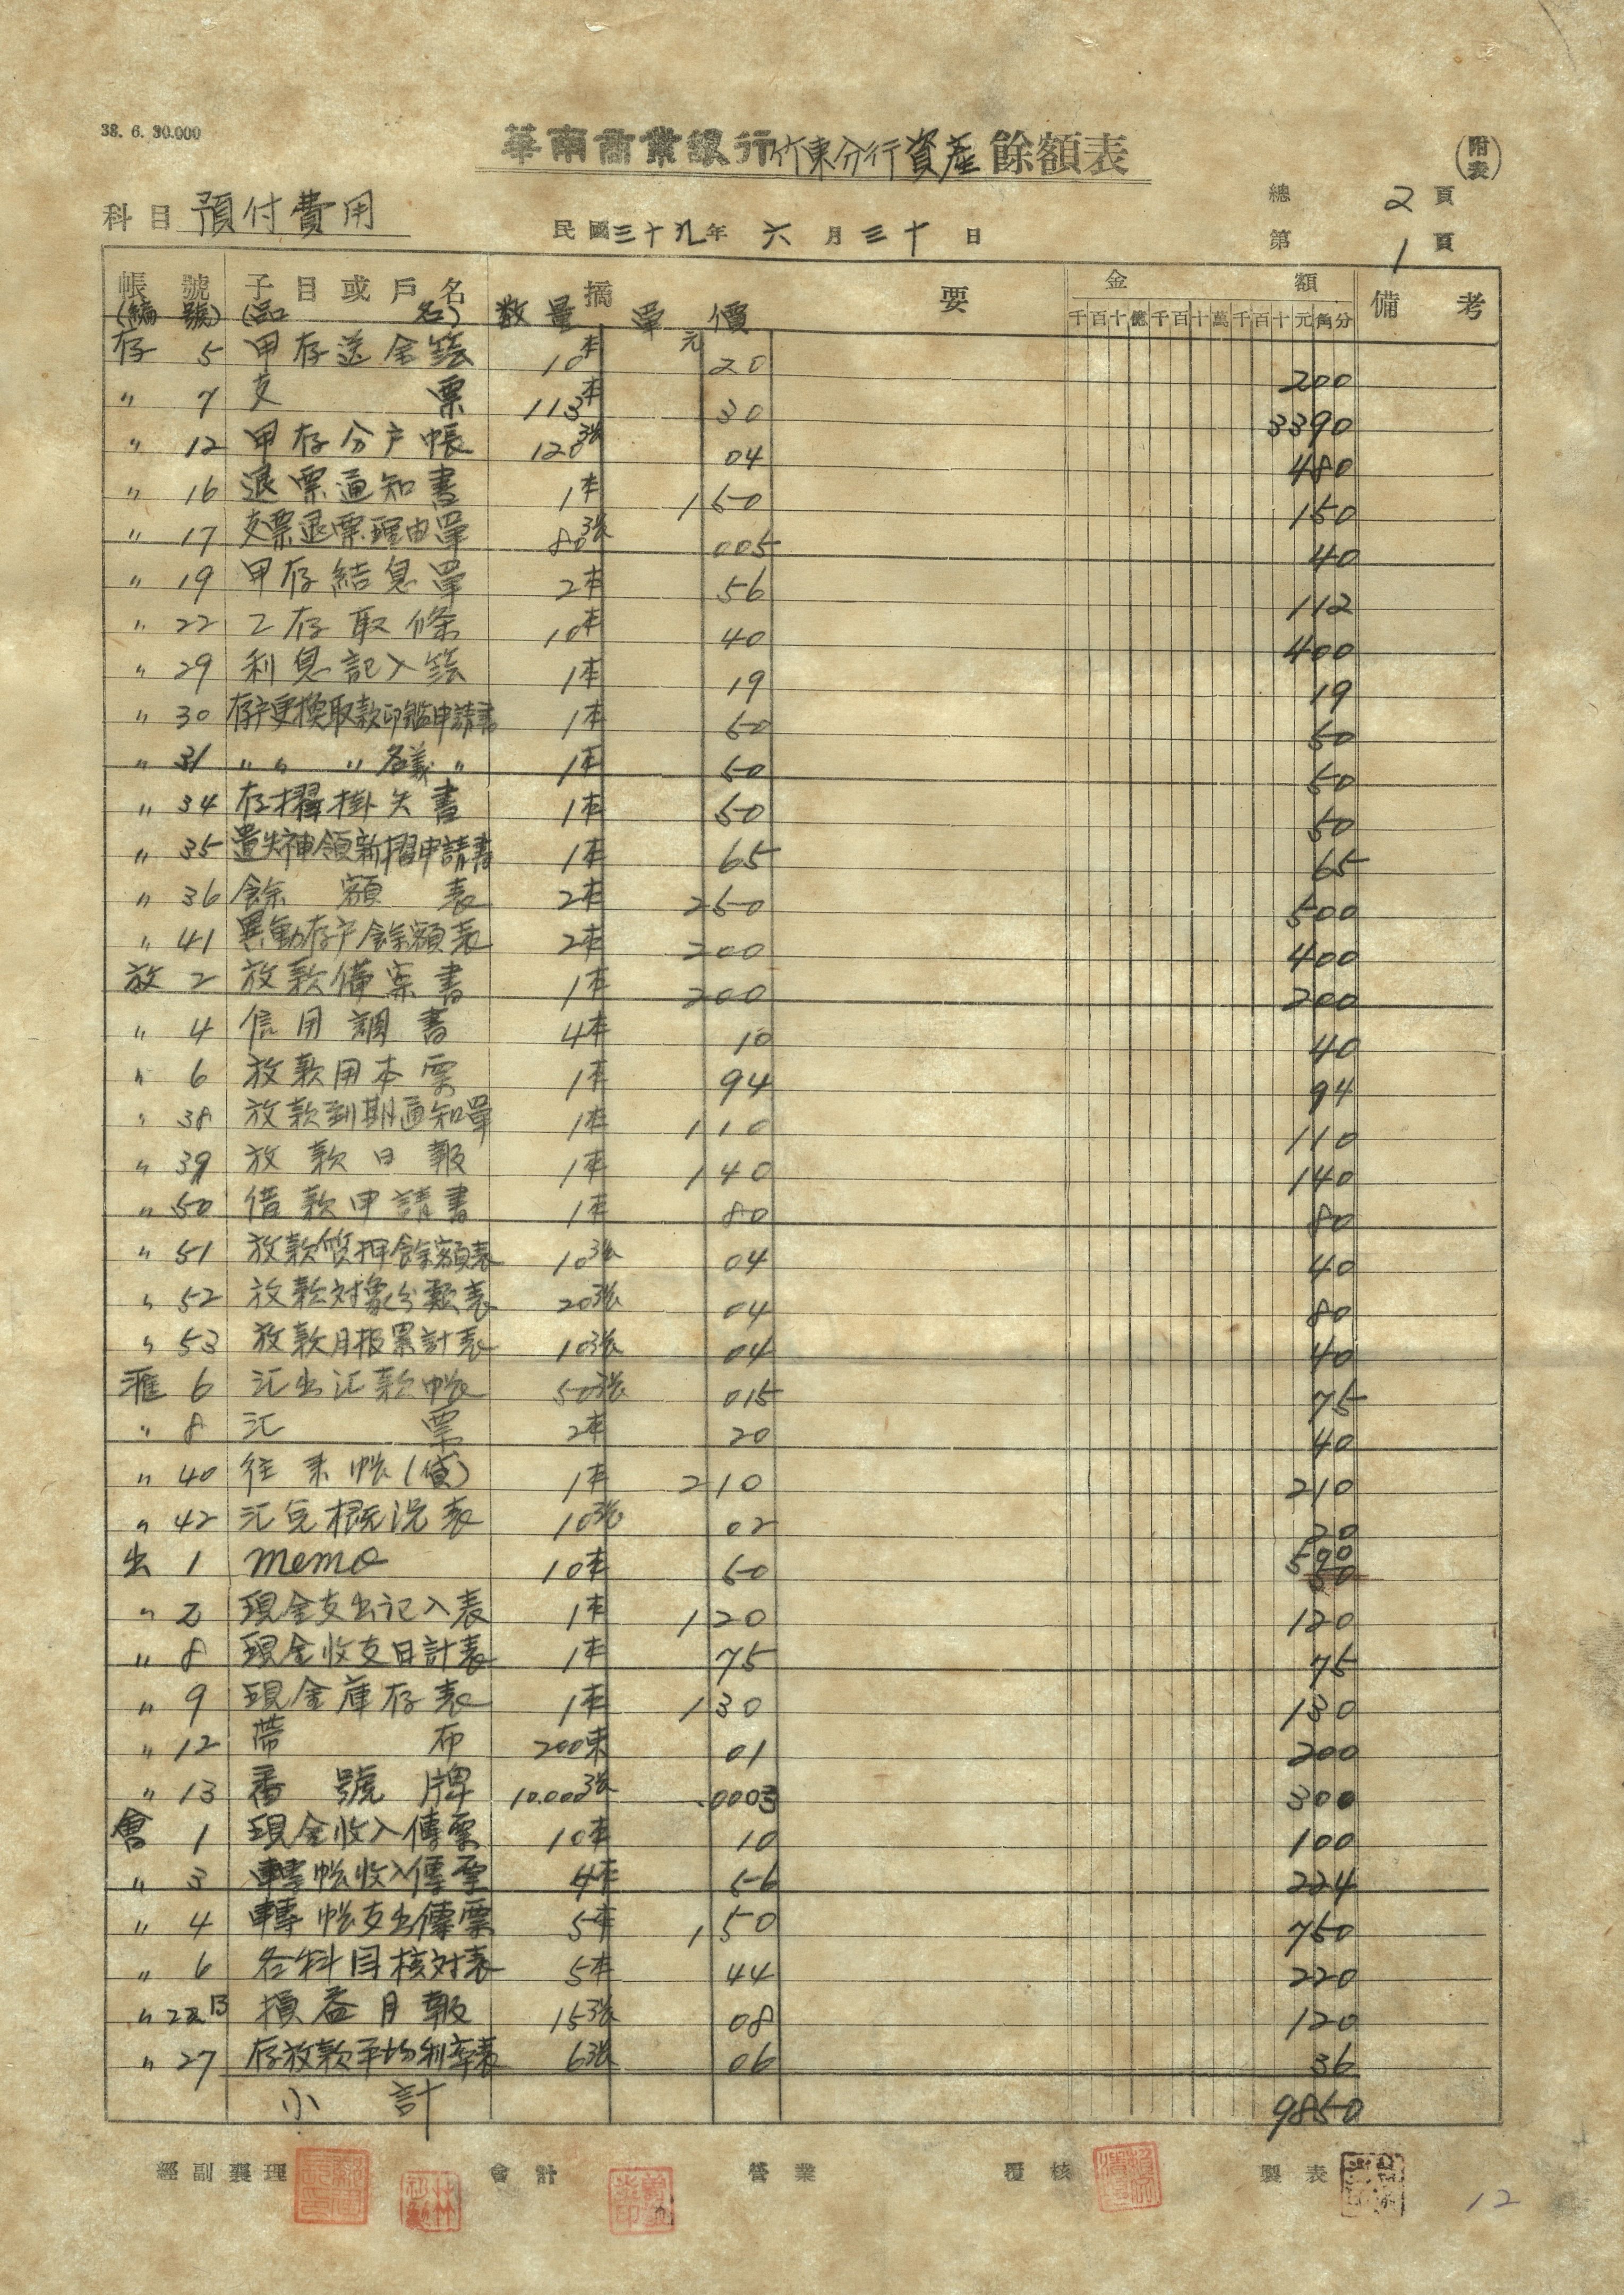 38. 6. 30.000
華南商業銀行竹東分行資產餘額表
(附表)
科目 預付費用
民國三十九年 六月三十日
總 2 頁
第 1 頁
帳號 子目或戶名 摘要 金額 備考
(編號) (品名) 数量 單價 千百十億千百十萬千百十元角分
存 5 甲存送金簿 10本 元 20 200
〃 7 支票 113本 30 3390
〃 12 甲存分户帳 120張 04 480
〃 16 退票通知書 1本 150 150
〃 17 支票退票理由單 80張 005 40
〃 19 甲存結息單 2本 56 112
〃 22 乙存取條 10本 40 400
〃 29 利息記入簿 1本 19 19
〃 30 存户更換取款印鑑申請書 1本 50 50
〃 31 〃 〃 〃 名義 〃 1本 50 50
〃 34 存摺掛失書 1本 50 50
〃 35 遺失補領新摺申請書 1本 65 65
〃 36 餘額表 2本 250 500
〃 41 異動存户餘額表 2本 200 400
放 2 放款備案書 1本 200 200
〃 4 信用調書 4本 10 40
〃 6 放款用本票 1本 94 94
〃 38 放款到期通知單 1本 110 110
〃 39 放款日報 1本 140 140
〃 50 借款申請書 1本 80 80
〃 51 放款質押餘額表 10張 04 40
〃 52 放款对象分類表 20張 04 80
〃 53 放款月报累計表 10張 04 40
滙 6 汇出汇款帐 50張 015 75
〃 8 汇票 2本 20 40
〃 40 往來帐(貸) 1本 210 210
〃 42 汇兌概況表 10張 02 20
出 1 memo 10本 50 500
〃 2 現金支出记入表 1本 120 120
〃 8 現金收支日計表 1本 75 75
〃 9 現金庫存表 1本 130 130
〃 12 帶布 200束 01 200
〃 13 番號牌 10.000張 .0003 300
會 1 現金收入傳票 10本 10 100
〃 3 轉帐收入傳票 4本 56 224
〃 4 轉帐支出傳票 5本 150 750
〃 6 各科目核対表 5本 44 220
〃 22B 損益月報 15張 08 120
〃 27 存放款平均利率表 6張 06 36
小計 9850
經副襄理 會計 營業 覆核 製表
12